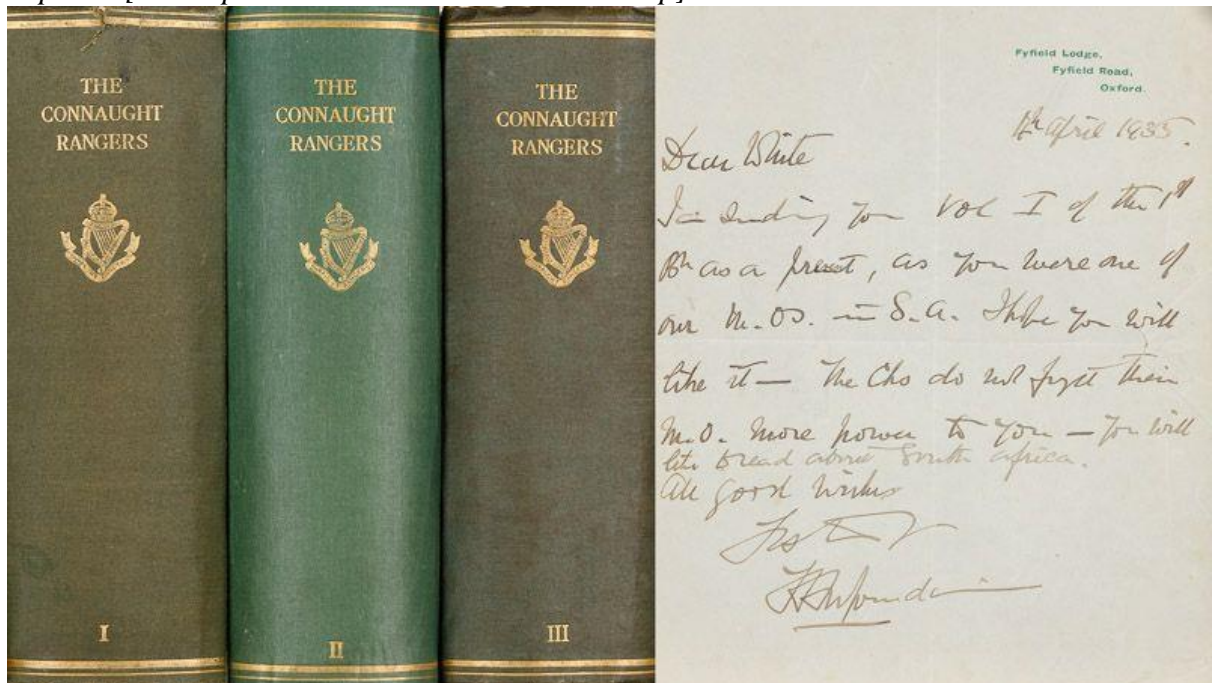 THE
CONNAUGHT
RANGERS
I
THE
CONNAUGHT
RANGERS
II
THE
CONNAUGHT
RANGERS
III
Fyfield Lodge,
Fyfield Road,
Oxford.
April 1935.
Dear White
I am sending you Vol I of the 1st
Bn as a present, as you were one of
our M.Os. in S.A. I hope you will
like it — The do not forget their
M.O. More power to you — you will
like to read about South Africa.
All good wishes